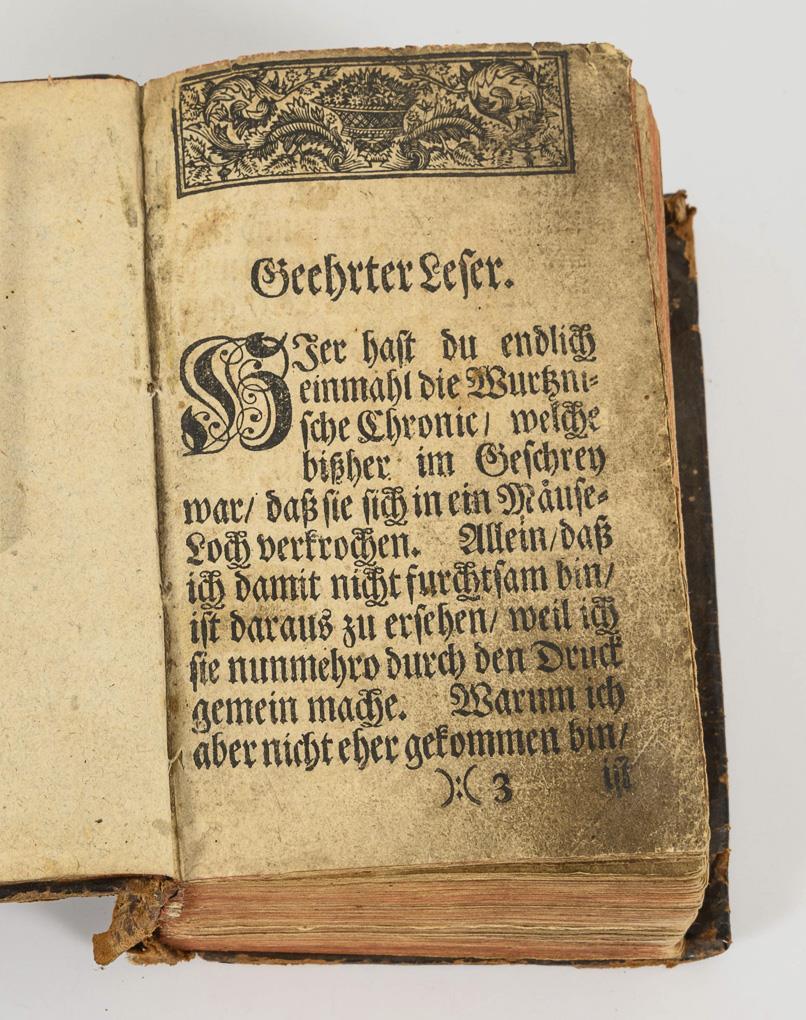 Geehrter Leser.
HIer hast du endlich
einmahl die Wurtzni-
sche Chronic/ welche
bißher im Geschrey
war/ daß sie sich in ein Mäuse-
Loch verkrochen. Allein/daß
ich damit nicht furchtsam bin/
ist daraus zu ersehen/ weil ich
sie nunmehro durch den Druck
gemein mache. Warum ich
aber nicht eher gekommen bin/
):( 3 ist